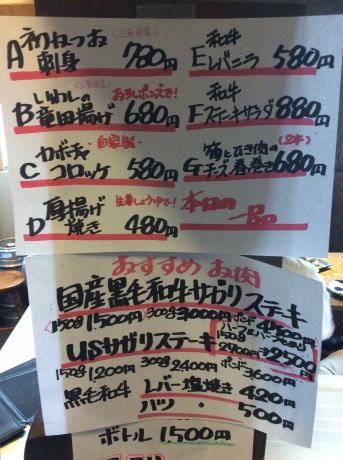 <三重県産>
A 初かつお 刺身 780円
<三重県産> おろしポン酢で!
B いわしの 竜田揚げ 680円
自家製
C カボチャ コロッケ 580円
生姜しょうゆで!
D 厚揚げ 焼き 480円
E 和牛 レバニラ 580円
F 和牛 ステキサラダ 880円
(2本)
G 筍とひき肉の チーズ春巻き 680円
本日の 一品
おすすめ お肉
国産黒毛和牛サガリステーキ
150g 1,500円 300g 3000円 ポンド 4500円
USサガリステーキ
ハーフ&ハーフ
150g 1,200円 300g 2400円 ポンド 3600円
2900円 2500円
黒毛和牛 レバー塩焼き 420円
ハツ 〃 500円
ボトル 1,500円